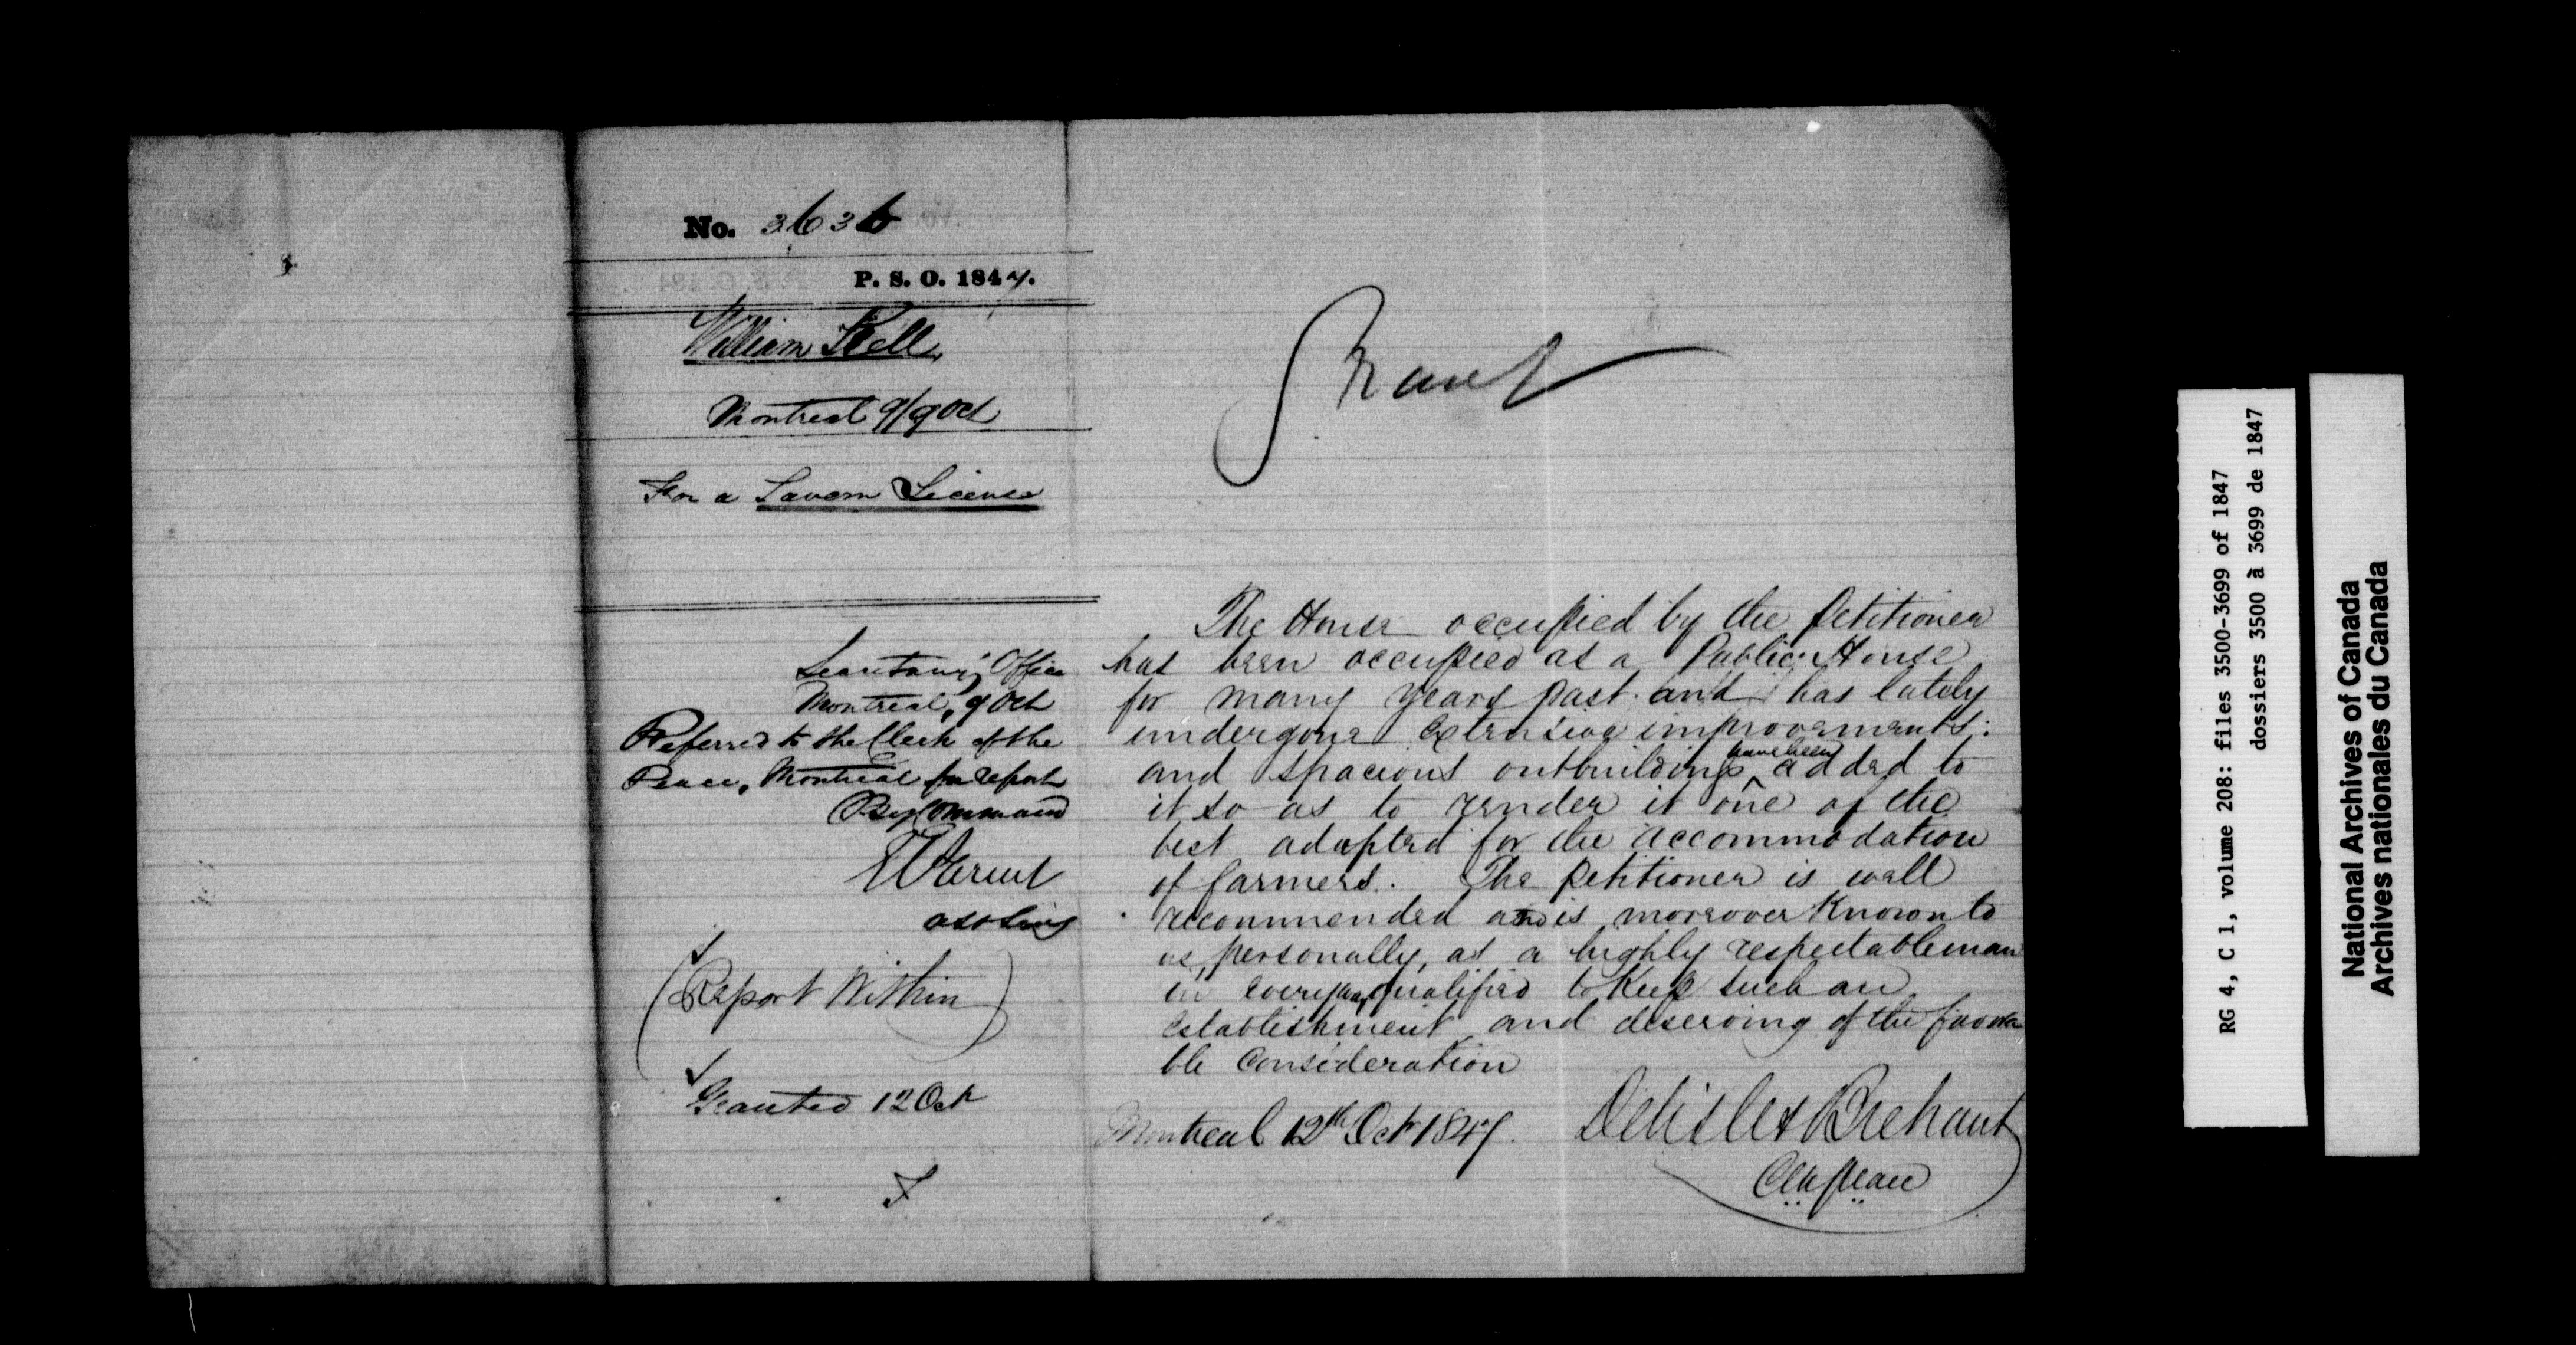 No. 3636
P. S. O. 1847.
William Kell,
Montreal 9/9 Oct
For a Tavern License
Secretary's Office
Montreal, 9 Oct
Referred to the Clerk of the
Peace, Montreal for report
By Command
E Parent
ass Secy
(Report Within)
Granted 12 Oct
Grant
The House occupied by the Petitioner
has been occupied as a Public House
for many years past and has lately
undergone extensive improvements:
and spacious outbuildings have been added to
it so as to render it one of the
best adapted for the accommodation
of farmers. The petitioner is well
recommended and is moreover Known to
us, personally, as a highly respectable man
in every way qualified to Keep such an
establishment and deserving of the favora
ble Consideration
Montreal 12th Oct 1847.
Delisle & Brehaut
Clk Peace
RG 4, C 1, volume 208: files 3500-3699 of 1847
dossiers 3500 à 3699 de 1847
National Archives of Canada
Archives nationales du Canada